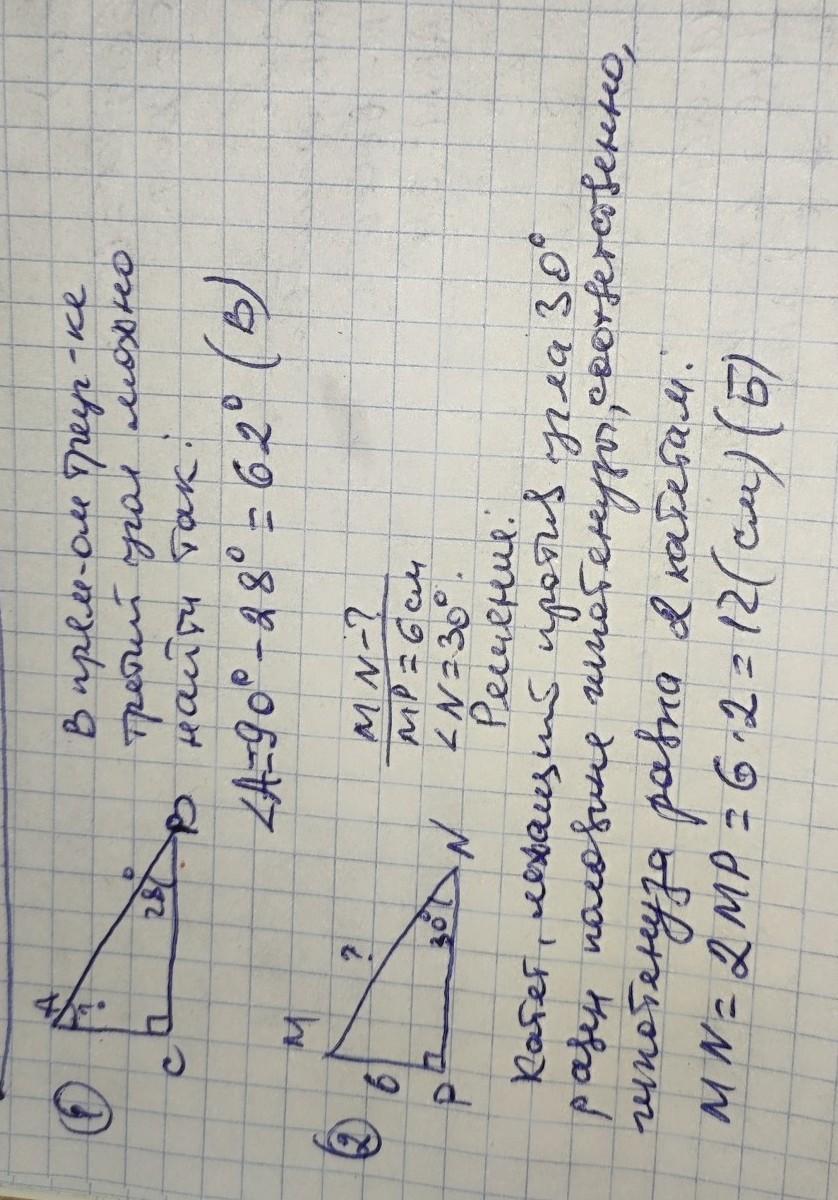 1
A
?
28°
C
B
В прям-ом треуг-ке
третий угол можно
найти так:
∠A=90°-28°=62° (В)
2
M
?
6
30°
P
N
MN-?
MP=6см
∠N=30°.
Решение:
Катет, лежащий против угла 30°
равен половине гипотенузы, соответственно,
гипотенуза равна 2 катетам:
MN=2MP=6·2=12(см) (Б)